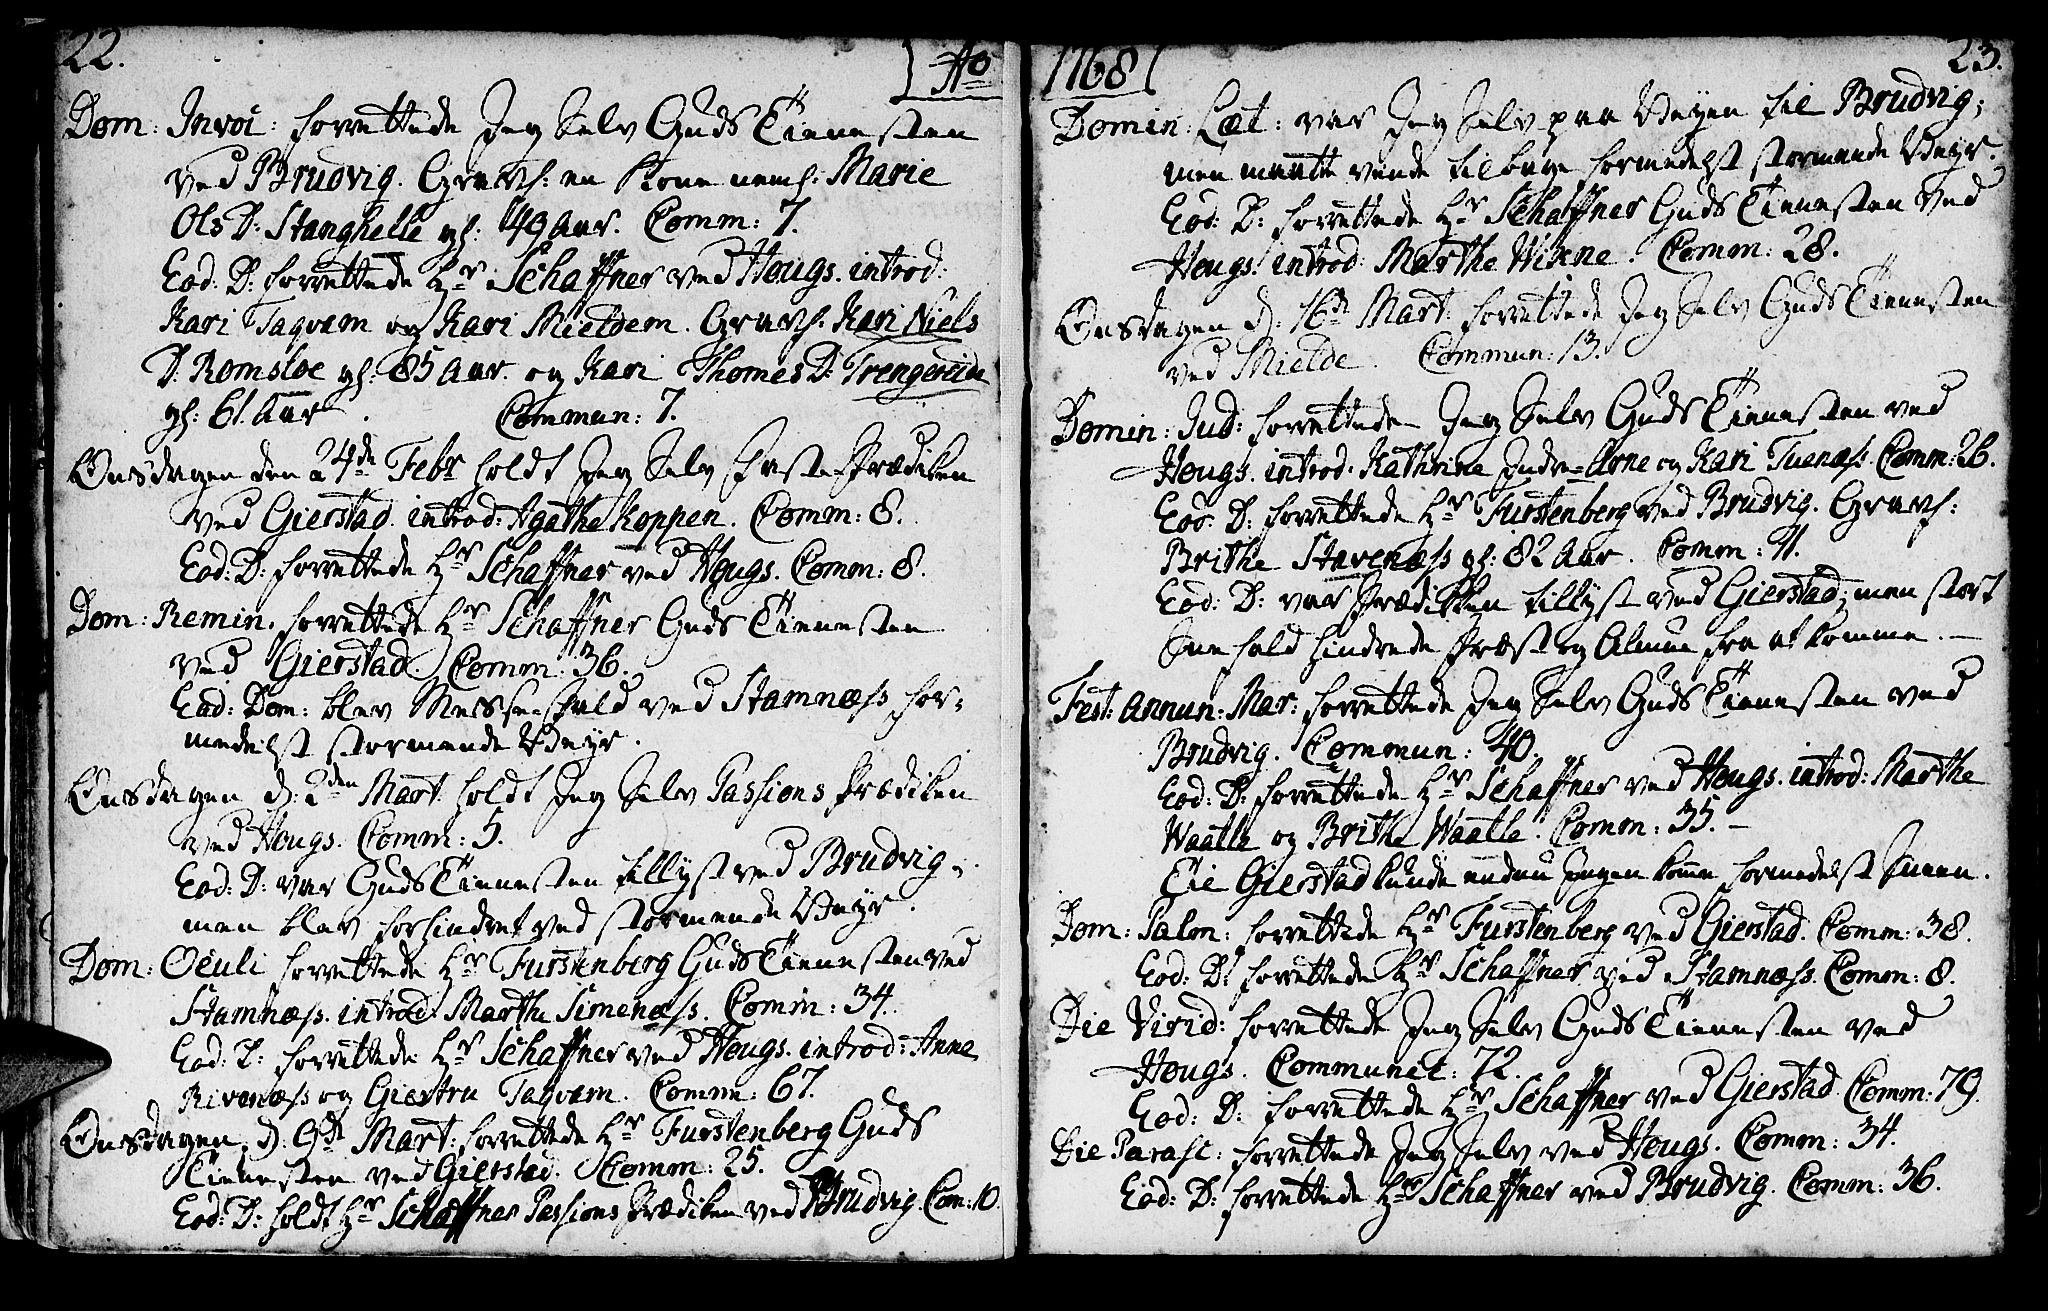 22.
Aº
Dom: Invoc: forrettede Jeg Selv Guds Tienesten
ved Brudvig. Gravf: en Kone nemh: Marie
Ols D: Stanghelle gl: 49 Aar. Comm: 7.
Eod: D: forrettede Hr Schaffner ved Hougs. introd:
Kari Taqvam og Kari Mieldem. Gravf: Kari Niels
D. Romsloe gl: 85 Aar. og Kari Thomes D: Trengereide
gl: 61. Aar. Commun: 7.
Onsdagen den 24de Febr holdt Jeg Selv faste Prædiken
ved Gierstad. introd: Agathe Koppen. Comm: 8.
Eod: D: forrettede Hr Schaffner ved Hougs. Comm: 8.
Dom: Remin. forrettede Hr Schaffner Guds Tienesten
ved Gierstad. Comm: 36.
Eod: Dom: blev Messe-fald ved Stamnæss for-
medelst stormende Veyr.
Onsdagen d: 2den Mart: holdt Jeg Selv Passions Prædiken
ved Hougs. Comm: 5.
Eod: D: var Guds Tienesten tillyst ved Brudvig,
men blev forhindret ved stormende Veyr.
Dom: Oculi forrettede Hr Furstenberg Guds Tienesten ved
Stamnæss. introd: Marthe Simenæss. Comm: 34.
Eod: D: forrettede Hr Schaffner ved Hougs. introd: Anne
Rivenæss og Giertru Taqvam. Comm: 67.
Onsdagen d: 9de Mart: forrettede Hr Furstenberg Guds
Tienesten ved Gierstad. Comm: 25.
Eod: D: holdt Hr Schaffner Passions Prædiken ved Brudvig. Com: 10.
1768
23.
Domin: Læt: var Jeg Selv paa Veyen til Brudvig;
men maatte vende tilbage formedelst stormende Veyr.
Eod: D: forrettede Hr Schaffner Guds Tienesten ved
Hougs. introd: Marthe Wixne. Comm: 28.
Onsdagen d: 16de Mart: forrettede Jeg Selv Guds Tienesten
ved Mielde. Commun: 13.
Domin: Jud: forrettede Jeg Selv Guds Tienesten ved
Hougs. introd: Kathrine Indre-Arne og Kari Tuenæss. Comm: 26.
Eod. D: forrettede Hr Furstenberg ved Brudvig. Gravf:
Brithe Stavenæss gl: 82 Aar. Comm: 11.
Eod: D: var Prædiken tillyst ved Gierstad; men stort
Snefald hindrede Præst og Almue fra at komme.
Fest: Annun: Mar: forrettede Jeg Selv Guds Tienesten ved
Brudvig. Commun: 40.
Eod: D: forrettede Hr Schaffner ved Hougs. introd: Marthe
Waatle og Brithe Waatle. Comm: 35.
Til Gierstad kunde endnu Ingen komme formedelst Sneen.
Dom: Palm: forrettede Hr Furstenberg ved Gierstad. Comm: 38.
Eod: D: forrettede Hr Schaffner ved Stamnæss. Comm: 8.
Die Virid: forrettede Jeg Selv Guds Tienesten ved
Hougs. Communic: 72.
Eod: D: forrettede Hr Schaffner ved Gierstad. Comm: 79.
Die Parasc: forrettede Jeg Selv ved Hougs. Comm: 34.
Eod: D: forrettede Hr Schaffner ved Brudvig. Comm: 36.